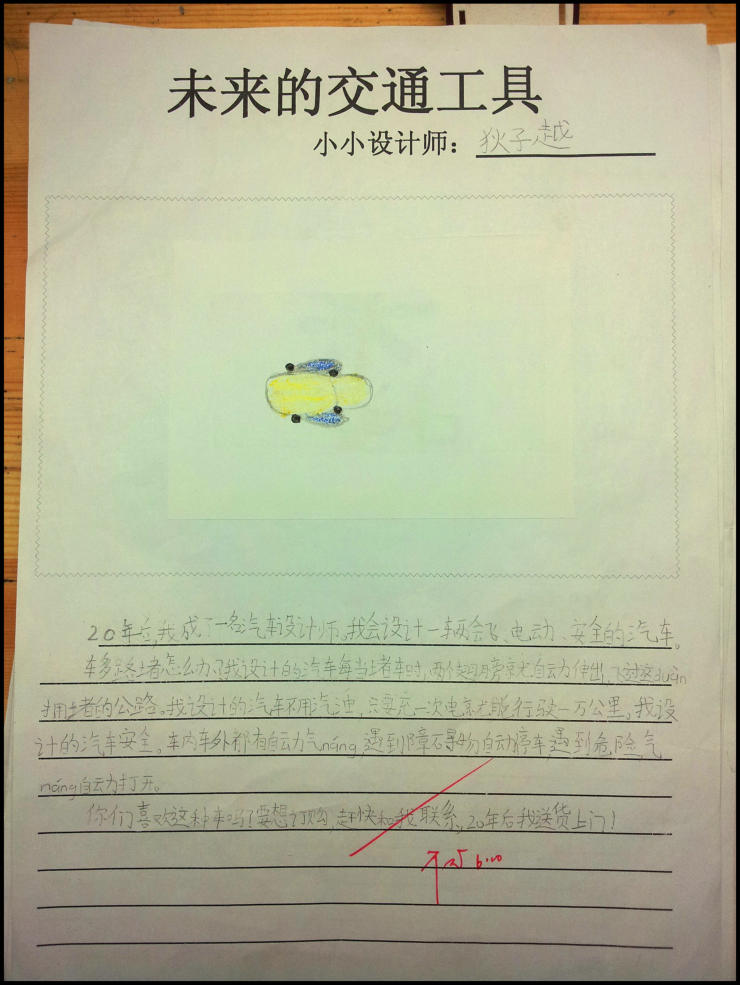 未来的交通工具
小小设计师：狄子越
20年后,我成了一名汽车设计师。我会设计一辆会飞、电动、安全的汽车。
车多路堵者怎么办?我设计的汽车每当堵者车时,两个翅膀就自动伸出,飞过这duàn
拥堵者的公路。我设计的汽车不用汽油,只要充一次电就能行驶一万公里。我设
计的汽车安全。车内车外都有自动气náng,遇到障碍物自动停车,遇到危险,气
náng自动打开。
你们喜欢这种车吗?要想订购,赶快和我联系,20年后我送货上门!